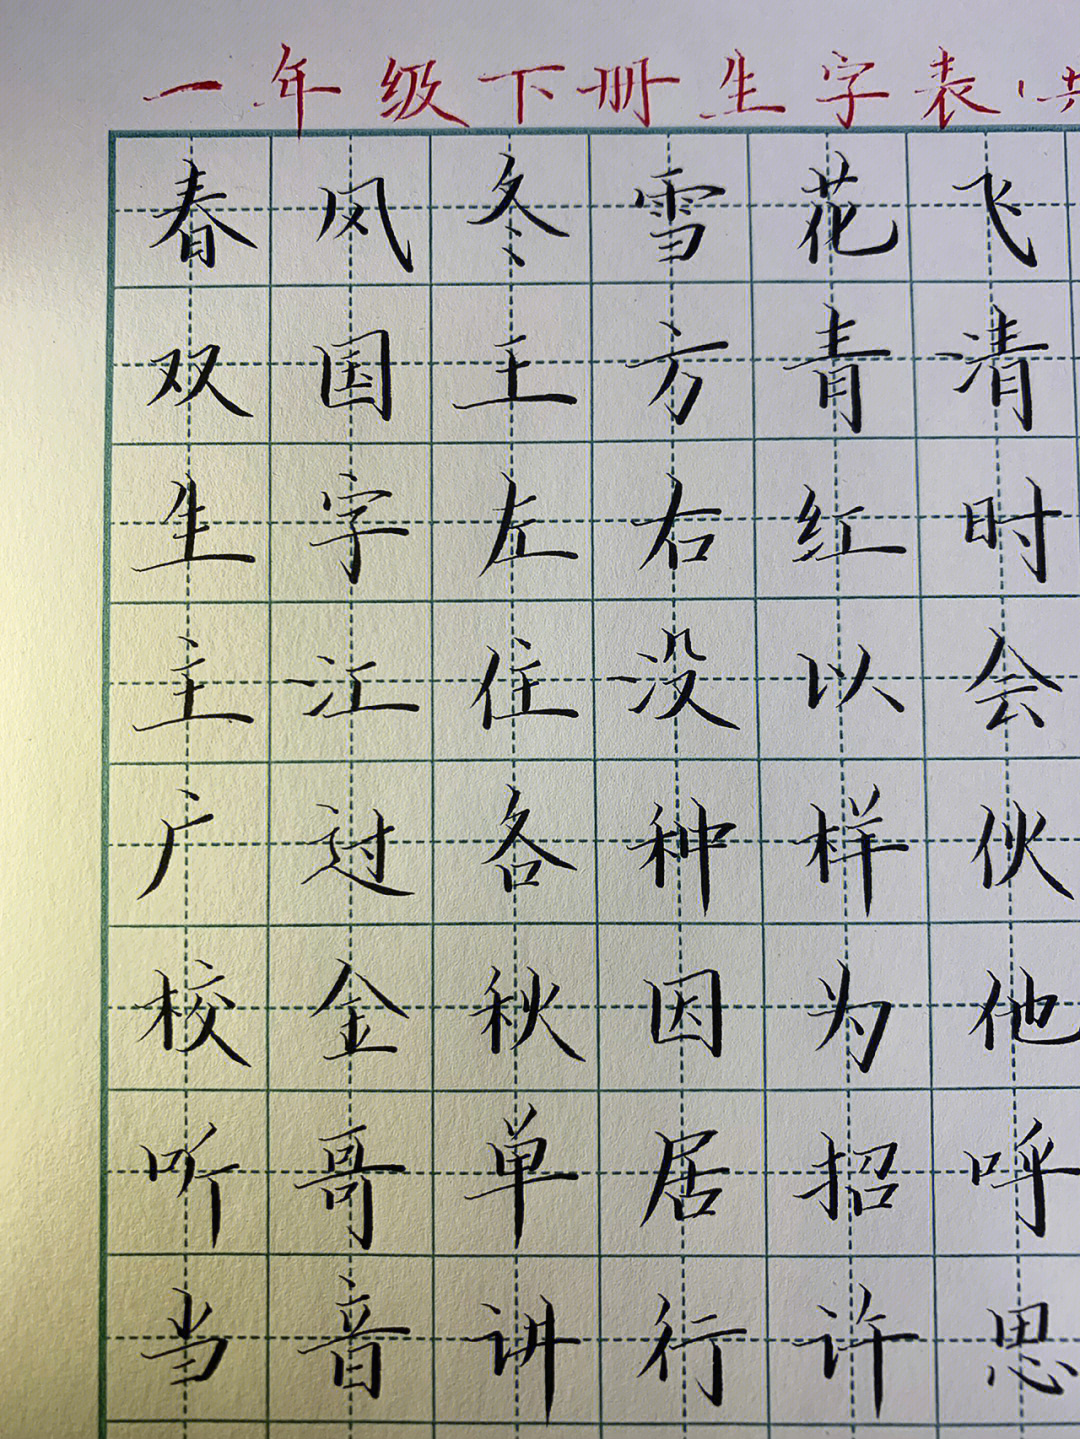 一年级下册生字表（共
春风冬雪花飞
双国王方青清
生字左右红时
主江住没以会
广过各种样伙
校金秋因为他
听哥单居招呼
当音讲行许思